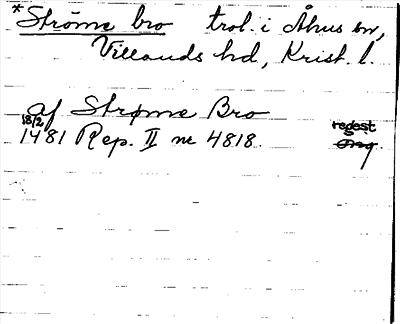 *Ströme bro trol. i Åhus sn,
Villands hd, Krist. l.
af Strøme Bro
18/2 1481 Rep. II nr 4818. regest
orig